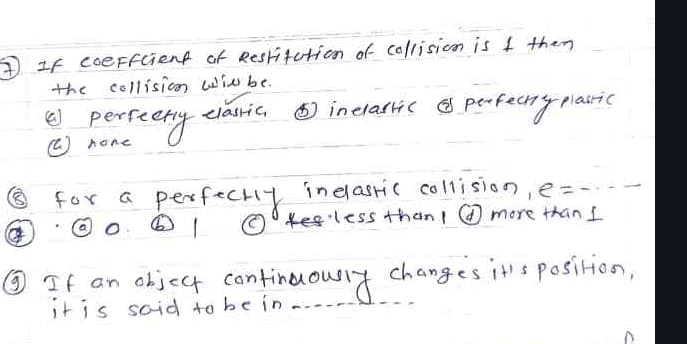 ⑦ If coefficient of Restitution of collision is 1 then
the collision will be.
ⓐ perfectly elastic ⓑ inelastic ⓓ perfectly plastic
ⓒ none
⑧ for a perfectly inelastic collision, e = -----
ⓐ 0. ⓑ 1 ⓒ less than 1 ⓓ more than 1
⑨ If an object continuously changes it's position,
it is said to be in ---------